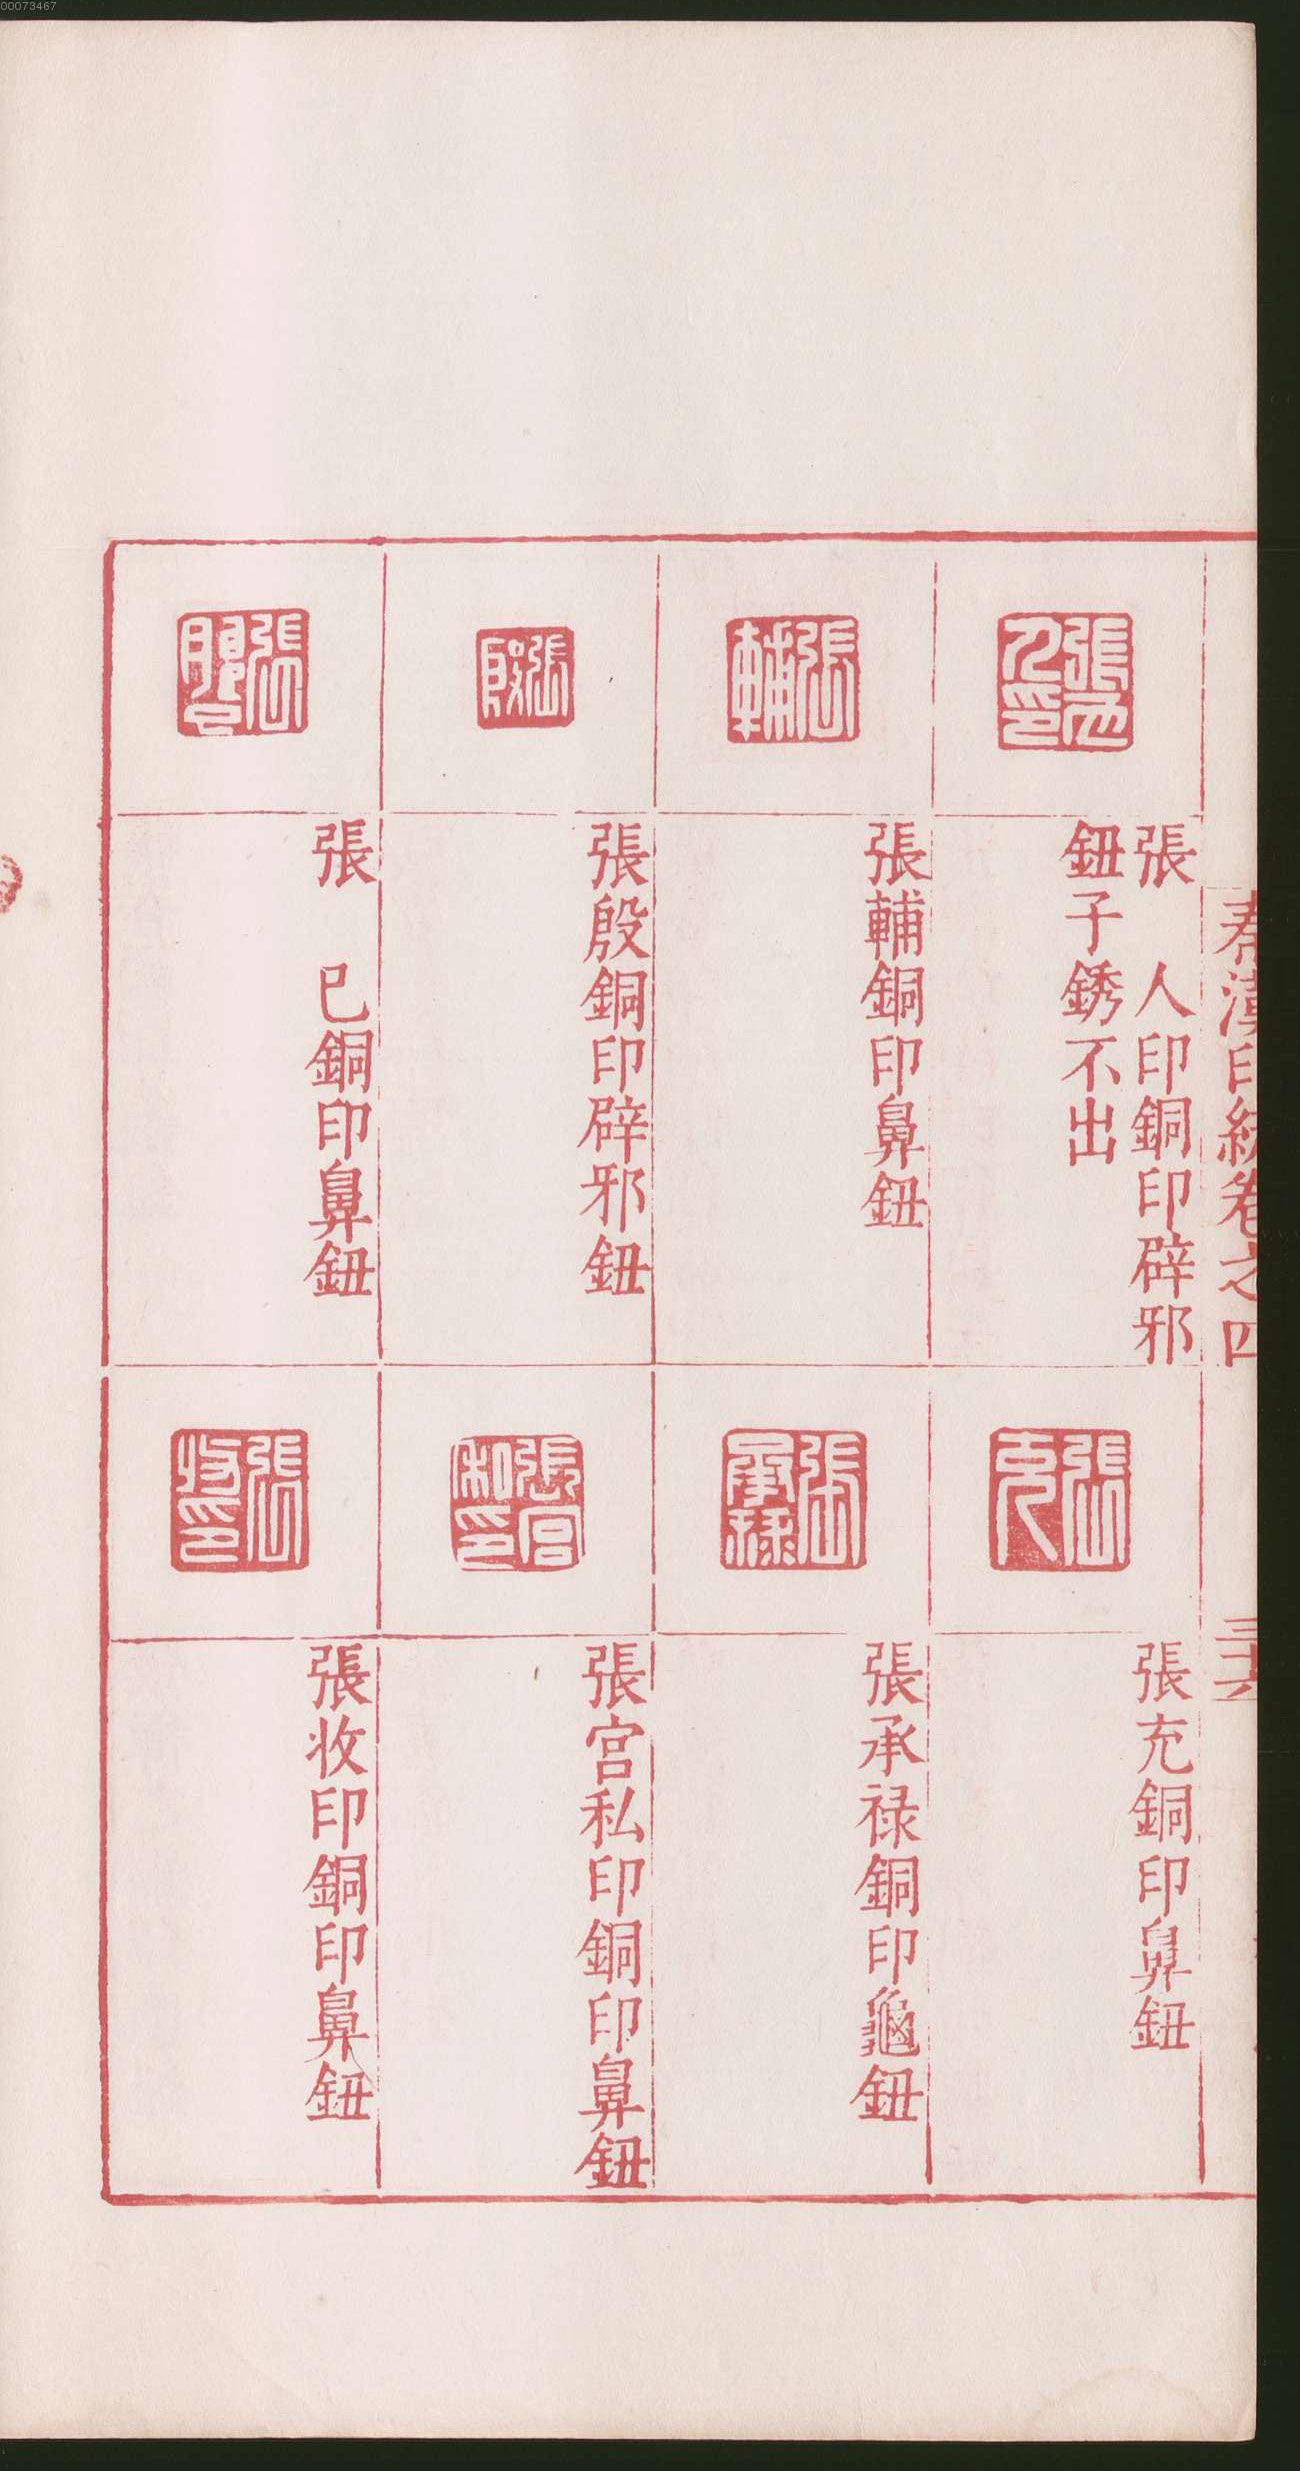 00073467
秦漢印統卷之四
三十六
張 人印銅印辟邪
鈕子銹不出
張輔銅印鼻鈕
張殷銅印辟邪鈕
張 巳銅印鼻鈕
張充銅印鼻鈕
張承祿銅印龜鈕
張宮私印銅印鼻鈕
張收印銅印鼻鈕